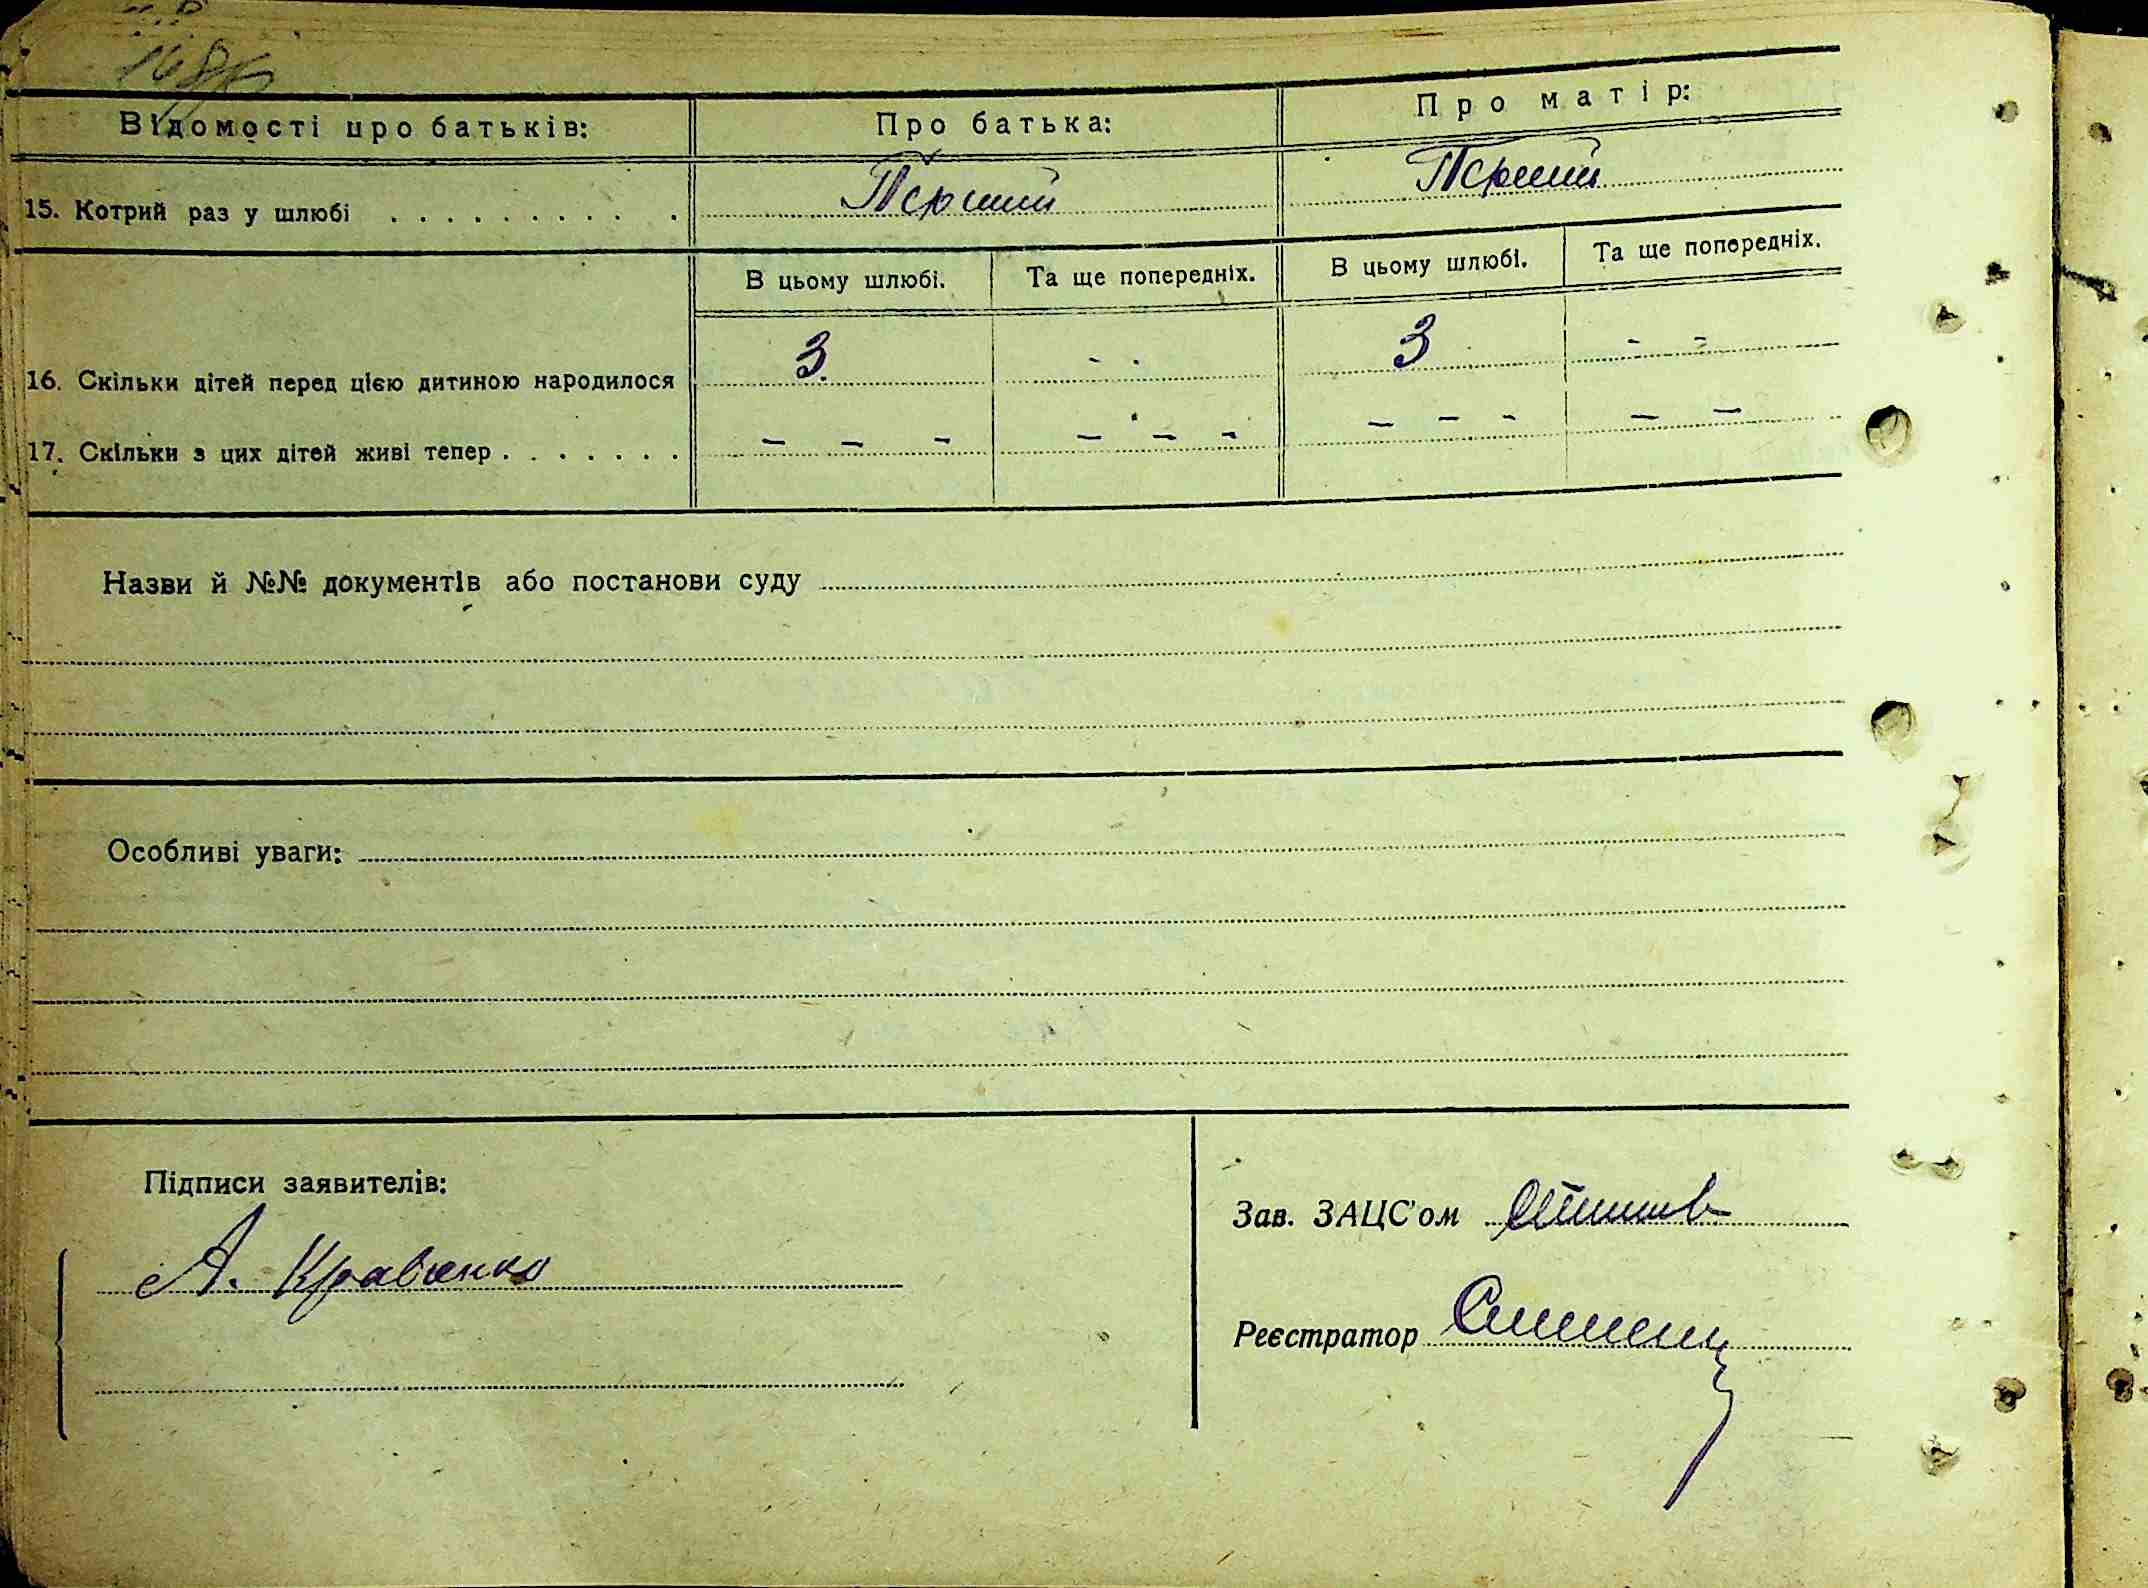 Відомості про батьків: Про батька: Про матір:
15. Котрий раз у шлюбі . . . . . . . . . . Перший Перший
В цьому шлюбі. Та ще попередніх. В цьому шлюбі. Та ще попередніх.
16. Скільки дітей перед цією дитиною народилося 3 - - 3 - -
17. Скільки з цих дітей живі тепер . . . . . . . - - - - - - - - - - -
Назви й №№ документів або постанови суду
Особливі уваги:
Підписи заявителів:
Зав. ЗАЦС'ом
А. Кравченко
Реєстратор